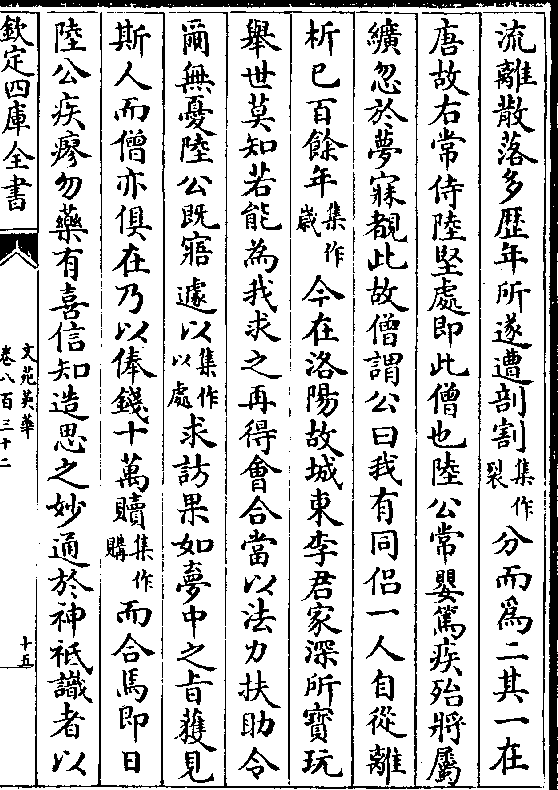 流離散落多歴年所遂遭剖割集作裂分而爲二其一在
唐故右常侍陸堅處即此僧也陸公常嬰篤疾殆將屬
纊忽於夢寐覩此故僧謂公曰我有同侣一人自從離
析已百餘年集作歲今在洛陽故城東李君家深所寳玩
舉世莫知若能為我求之再得會合當以法力扶助令
爾無憂陸公既寤遽以集作以處求訪果如夢中之㫖獲見
斯人而僧亦俱在乃以俸錢十萬贖集作購而合焉即日
陸公疾瘳勿藥有喜信知造思之妙通於神祇識者以
欽定四庫全書
文苑英華
卷八百三十二
十五